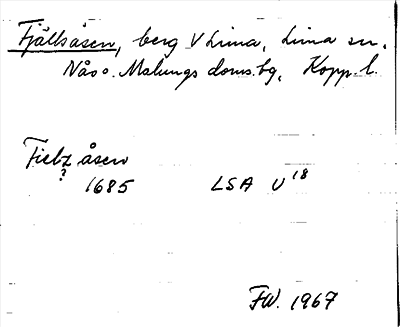 Fjällsåsen, berg V Lima, Lima sn.
Nås o. Malungs doms.bg, Kopp. l.
Fielz åsen
?
1685 LSA U18
FW. 1967